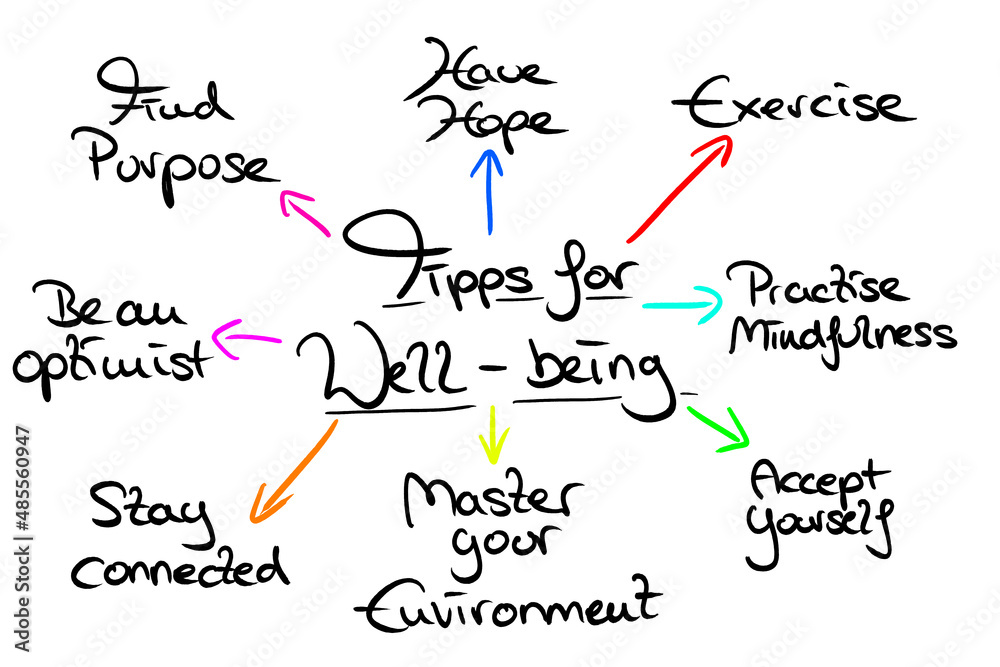 Find
Purpose
Have
Hope
Exercise
Tipps for
Well-being
Practise
Mindfulness
Be an
optimist
Accept
yourself
Stay
connected
Master
your
Environment
Adobe Stock | #485560947